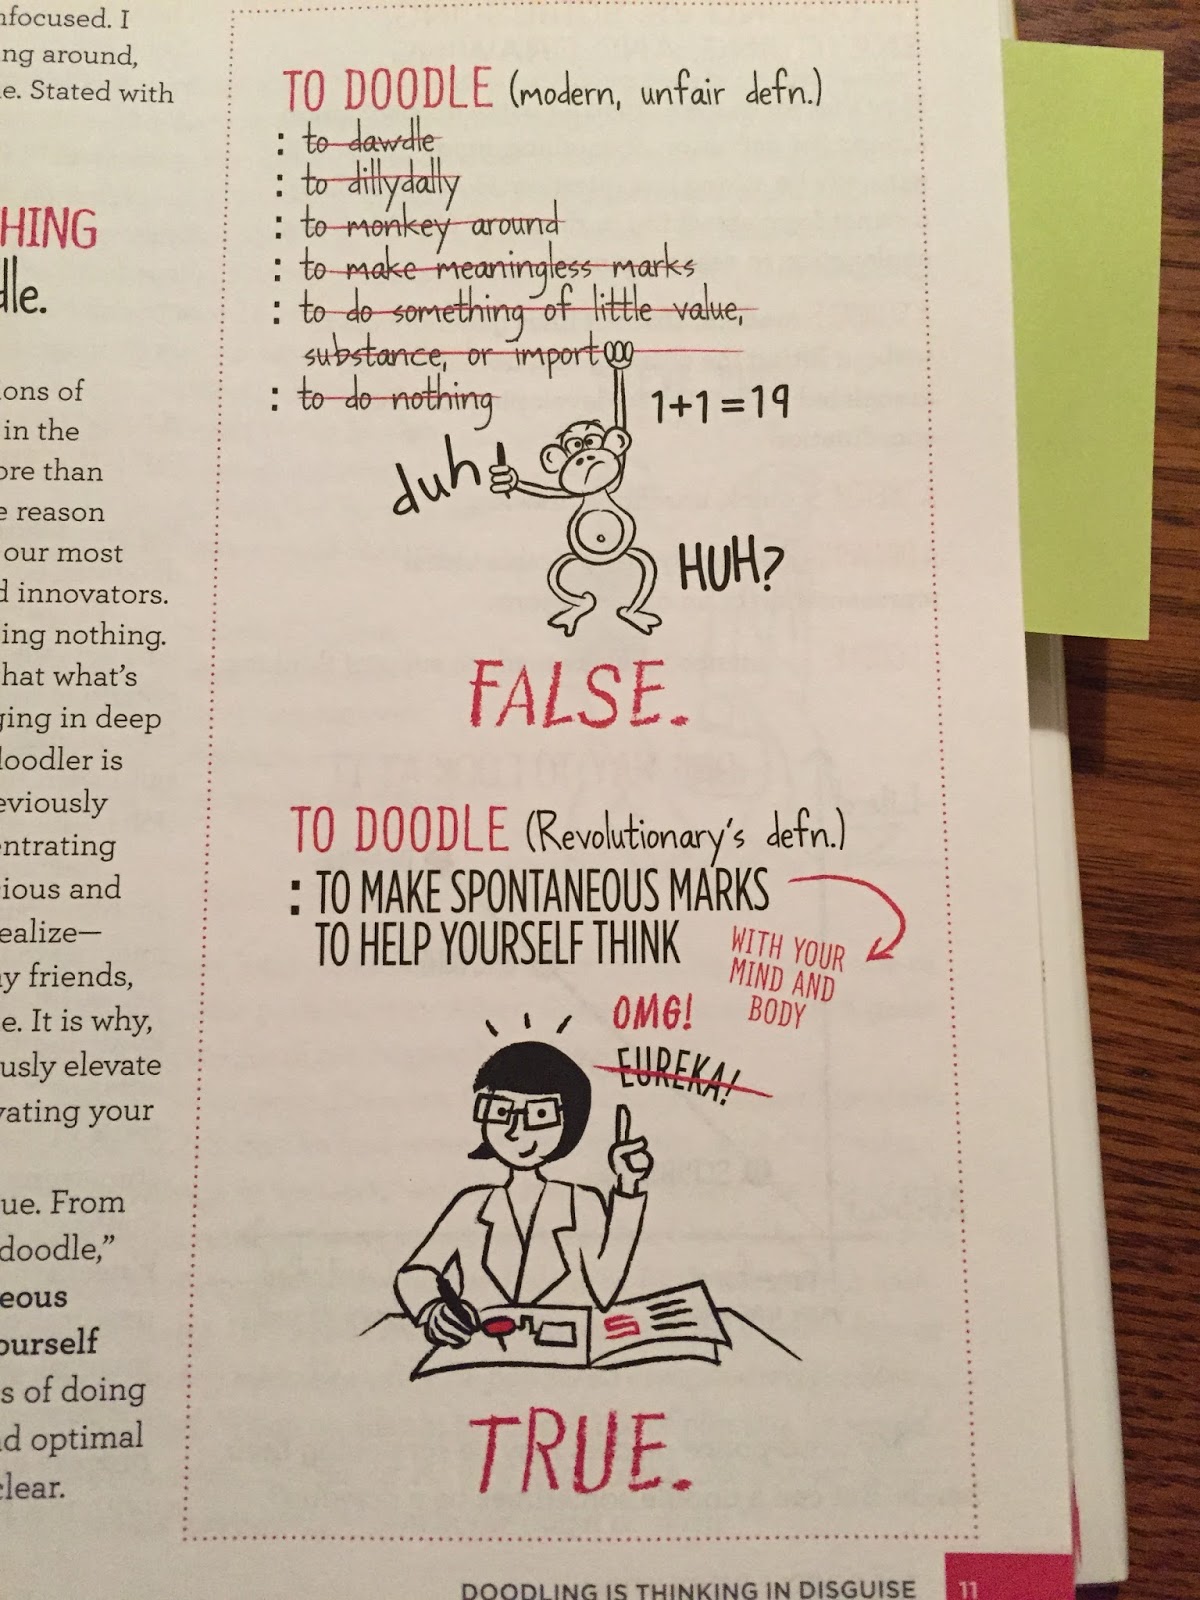 nfocused. I
ng around,
e. Stated with
HING
dle.
ons of
in the
ore than
e reason
our most
d innovators.
ing nothing.
hat what's
ging in deep
doodler is
eviously
entrating
cious and
ealize—
y friends,
e. It is why,
usly elevate
vating your
ue. From
doodle,"
eous
ourself
s of doing
nd optimal
clear.
TO DOODLE (modern, unfair defn.)
: to dawdle
: to dillydally
: to monkey around
: to make meaningless marks
: to do something of little value,
substance, or import
: to do nothing
1+1=19
duh
HUH?
FALSE.
TO DOODLE (Revolutionary's defn.)
: TO MAKE SPONTANEOUS MARKS
TO HELP YOURSELF THINK
WITH YOUR
MIND AND
BODY
OMG!
EUREKA!
TRUE.
DOODLING IS THINKING IN DISGUISE 11